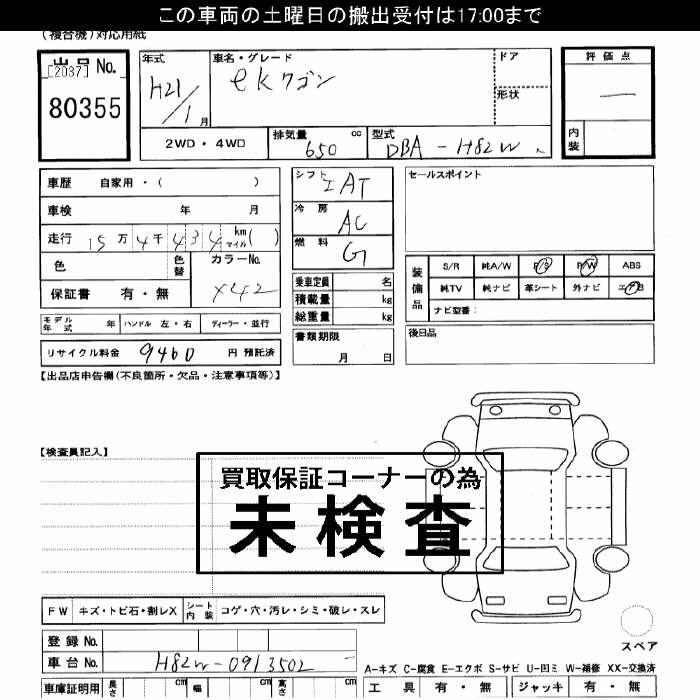 この車両の土曜日の搬出受付は17:00まで
(複合機)対応用紙
出品 No.
[2037]
80355
年式
H21/1 月
車名・グレード
ekワゴン
ドア
形状
評価点
—
内装
2WD・4WD
排気量 cc
650
型式
DBA-H82W
車歴 自家用・( )
車検 年 月
走行 15万4千434 km マイル( )
色
色替
カラーNo.
X42
保証書 有・無
シフト IAT
冷房 AC
燃料 G
乗車定員 名
積載量 kg
総重量 kg
書類期限
月 日
セールスポイント
装備品
S/R 純A/W P/S P/W ABS
純TV 純ナビ 革シート 外ナビ エアB
ナビ型番:
後日品
モデル年式 年 ハンドル 左・右 ディーラー・並行
リサイクル料金 9460 円 預託済
【出品店申告欄(不良箇所・欠品・注意事項等)】
【検査員記入】
買取保証コーナーの為
未検査
FW キズ・トビ石・割レX シート内装 コゲ・穴・汚レ・シミ・破レ・スレ
登録 No.
車台 No. H82W-0913502
スペア
A-キズ C-腐食 E-エクボ S-サビ U-凹ミ W-補修 XX-交換済
車庫証明用 長さ cm 幅 cm 高さ cm
工具 有・無 ジャッキ 有・無